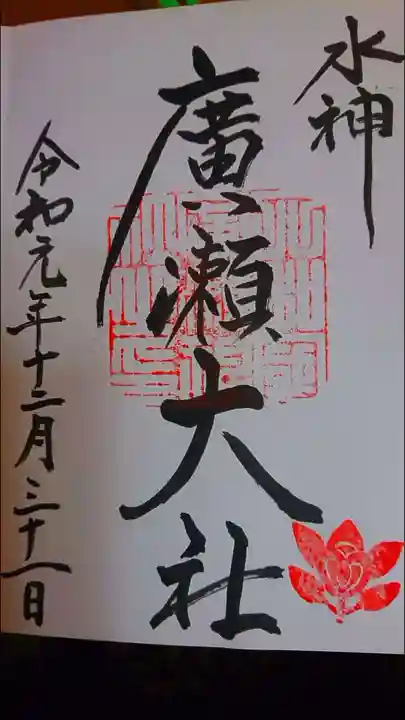 水神
廣瀬大社
令和元年十二月三十一日